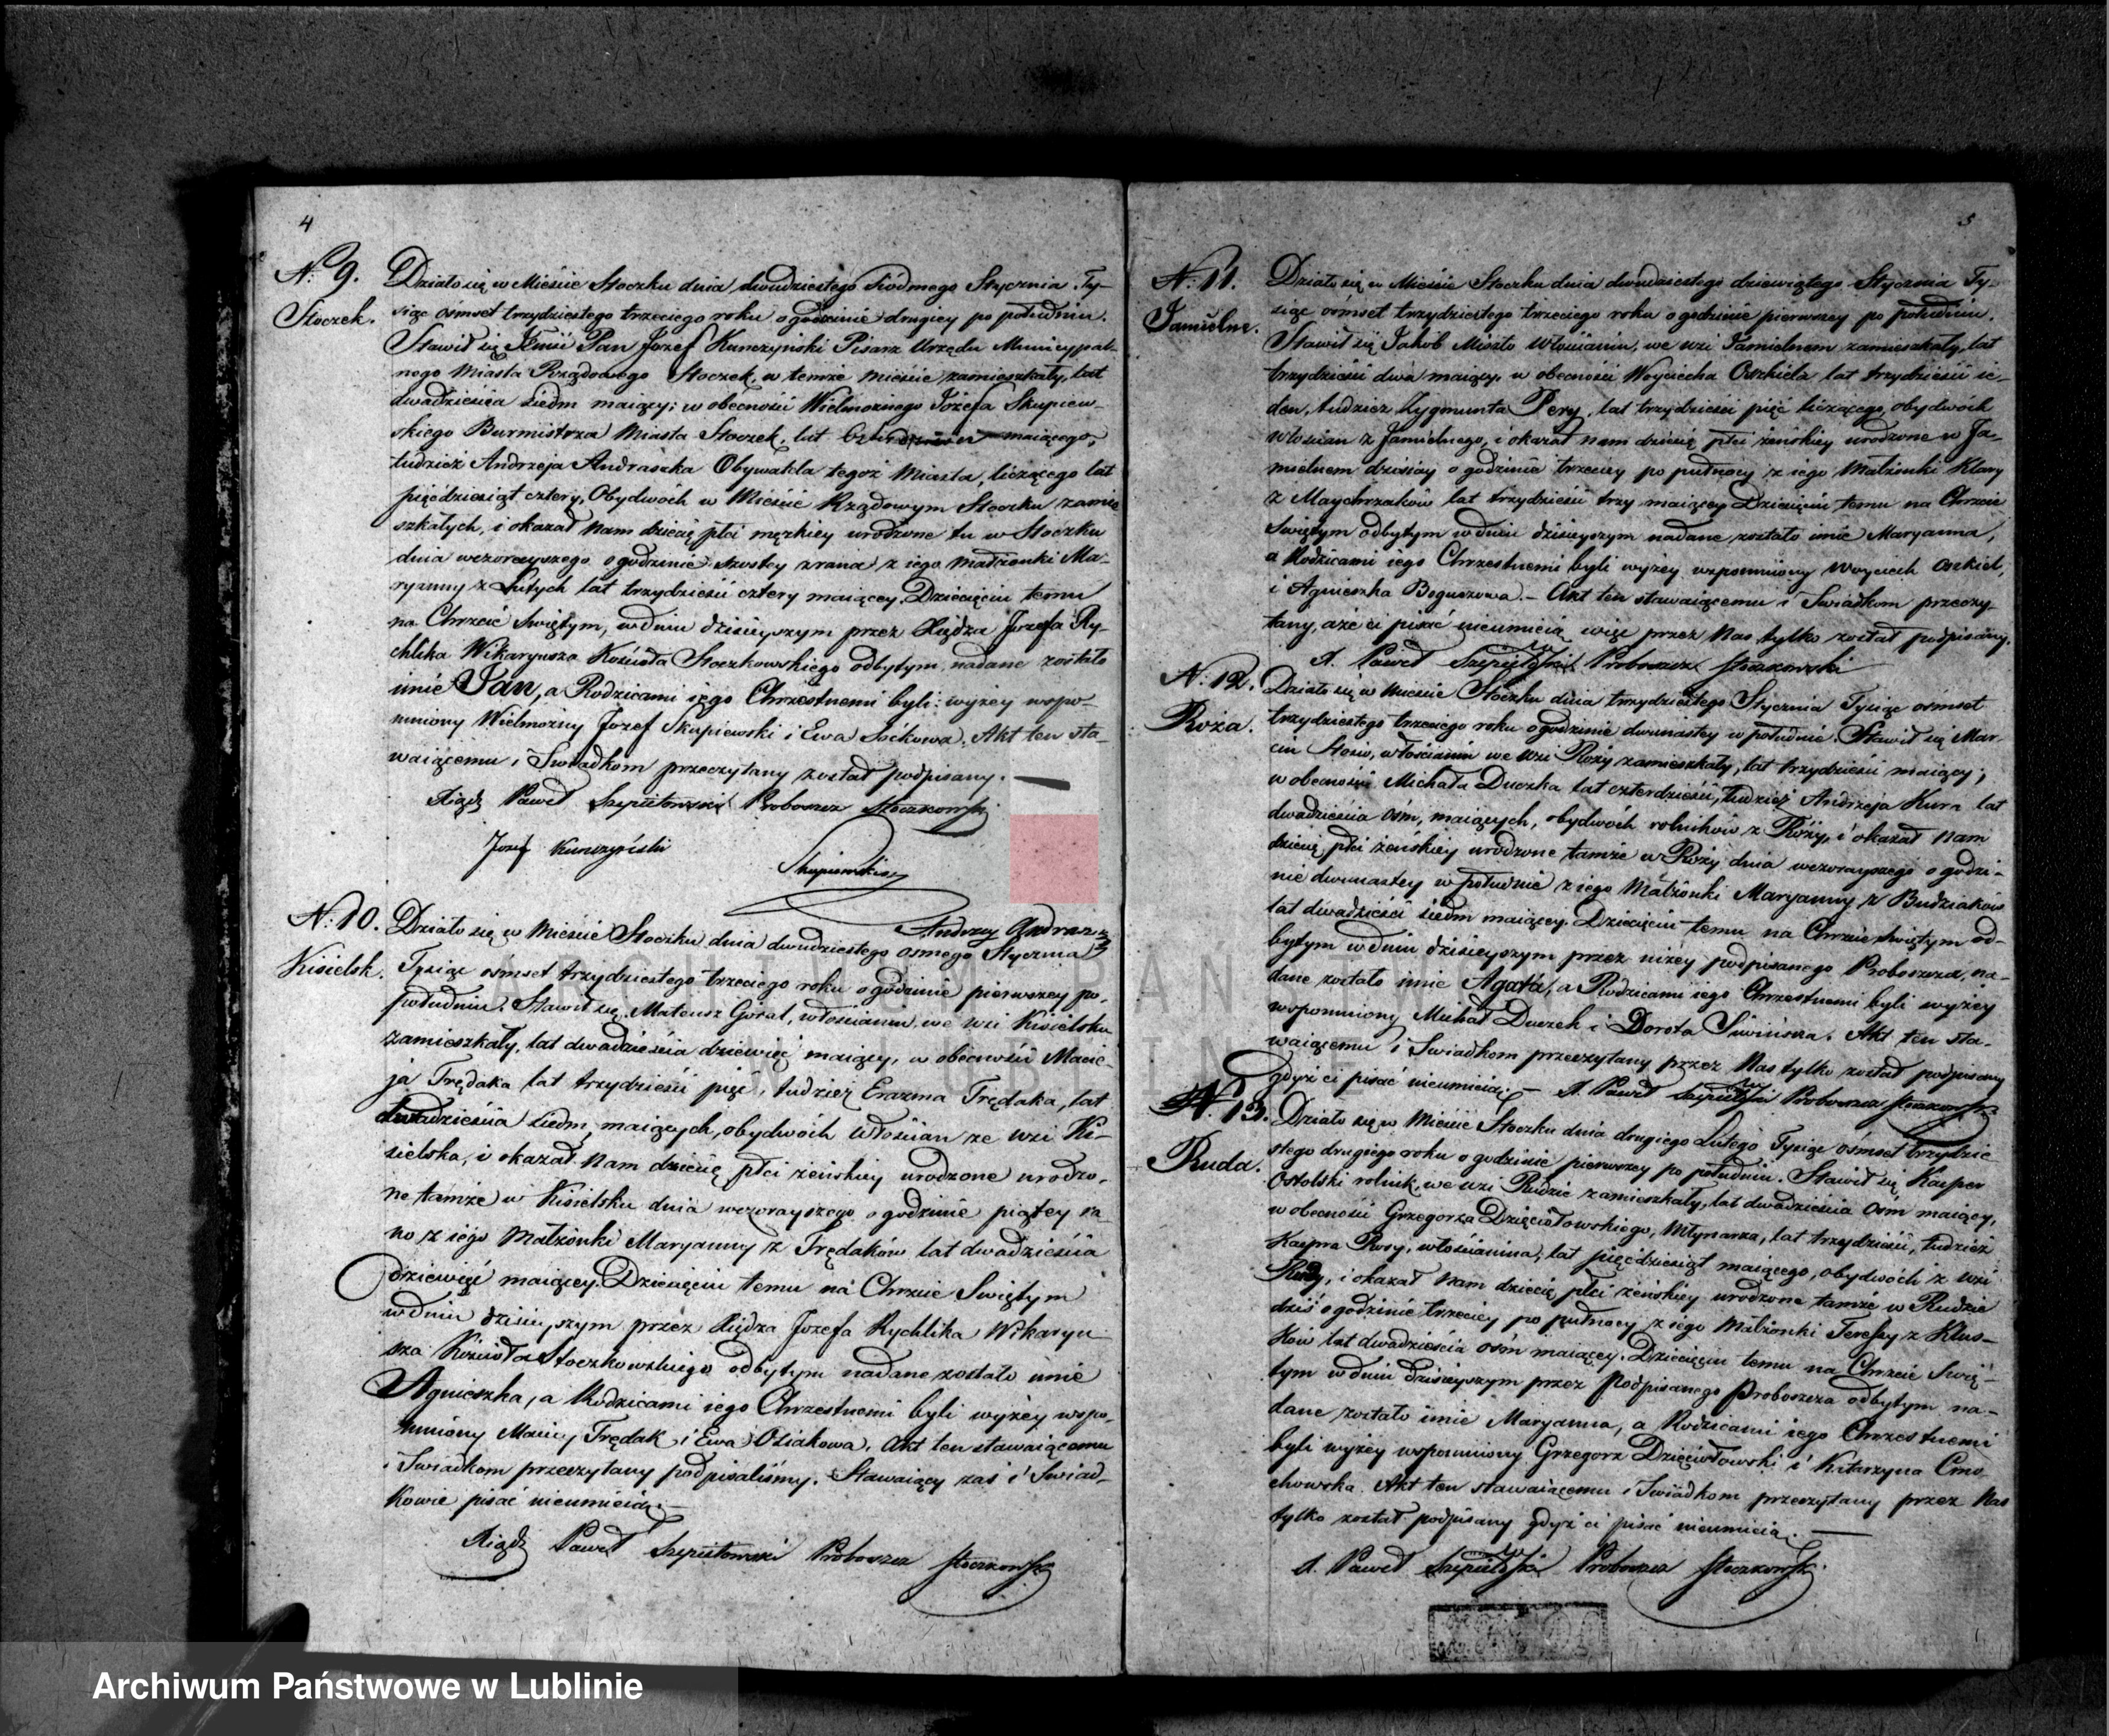 4
N: 9.
Stoczek.
Działo się w Mieście Stoczku dnia dwudziestego siódmego Stycznia Ty-
siąc ośmset trzydziestego trzeciego roku o godzinie drugiey po południu.
Stawił się Pan Jozef Kunczynski Pisarz Urzędu Municypal-
nego Miasta Rządowego Stoczek, w temże mieście zamieszkały, lat
dwadzieścia siedm maiący; w obecności Wielmożnego Józefa Skupiew-
skiego Burmistrza Miasta Stoczek, lat maiącego,
tudzież Andrzeja Andraszka Obywatela tegoż Miasta, liczącego lat
pięćdziesiąt cztery, Obydwóch w Mieście Rządowym Stoczku zamie
szkałych, i okazał Nam dziecię płci męzkiey urodzone tu w Stoczku
dnia wczorayszego o godzinie szostey zrana z iego małżonki Ma-
ryanny z Lutych lat trzydzieści cztery maiącey. Dziecięciu temu
na Chrzcie Swiętym, w dniu dzisieyszym przez Xiędza Jozefa Ry-
chlika Wikaryusza Kościoła Stoczkowskiego odbytym, nadane zostało
imie Jan, a Rodzicami iego Chrzestnemi byli: wyżey wspo-
mniony Wielmożny Jozef Skupiewski i Ewa Soćkowa. Akt ten sta-
waiącemu i Swiadkom przeczytany został podpisany.
Xiądz Paweł Szepietowski Proboszcz Stoczkowski
Jozef Kunczyński
Skupiewski
Andrzey Andrasz
N: 10.
Kisielsk.
Działo się w Mieście Stoczku dnia dwudziestego osmego Stycznia
Tysiąc osmset trzydziestego trzeciego roku o godzinie pierwszey po
południu. Stawił się Mateusz Goral, włościanin, we wsi Kisielsku
zamieszkały, lat dwadzieścia dziewięć maiący, w obecności Macie-
ja Trędaka lat trzydzieści pięć, tudzież Erazma Trędaka, lat
dwadzieścia siedm, maiących, obydwóch Włościan ze wsi Ki-
sielska, i okazał Nam dziecię płci żeńskiey urodzone urodzo-
ne tamże w Kisielsku dnia wczorayszego o godzinie piątey ra-
no z iego Małżonki Maryanny z Trędaków lat dwadzieścia
dziewięć maiącey. Dziecięciu temu na Chrzcie Swiętym
w dniu dzisieyszym przez Xiędza Jozefa Rychlika Wikaryu
sza Kościoła Stoczkowskiego odbytym nadane zostało imie
Agnieszka, a Rodzicami iego Chrzestnemi byli wyżey wspo-
mniony Maciey Trędak i Ewa Osiakowa. Akt ten stawaiącemu
i Swiadkom przeczytany podpisaliśmy. Stawaiący zaś i Swiad-
kowie pisać nieumieią.
Xiądz Paweł Szepietowski Proboszcz Stoczkowski
5
N: 11.
Jamielne.
Działo się w Mieście Stoczku dnia dwudziestego dziewiątego Stycznia Ty-
siąc ośmset trzydziestego trzeciego roku o godzinie pierwszey po południu.
Stawił się Jakób Miszto Włościanin, we wsi Jamielnem zamieszkały, lat
trzydzieści dwa maiący, w obecności Woyciecha Oszkiela lat trzydzieści ie-
den, tudzież Zygmunta Pery, lat trzydzieści pięć liczącego, obydwóch
włościan z Jamielnego, i okazał nam dziecię płci żeńskiey urodzone w Ja-
mielnem dzisiay o godzinie trzeciey po pułnocy z iego Małżonki Klary
z Maychrzaków lat trzydzieści trzy maiącey Dziecięciu temu na Chrzcie
Swiętym odbytym w dniu dzisieyszym nadane zostało imie Maryanna,
a Rodzicami iego Chrzestnemi byli wyżey wspomniony Woyciech Oszkiel,
i Agnieszka Boguszowa. - Akt ten stawaiącemu i Swiadkom przeczy-
tany, a że ci pisać nieumieią więc przez Nas tylko został podpisany.
X. Paweł Szepietowski Proboszcz Stoczkowski
N: 12.
Roża.
Działo się w Mieście Stoczku dnia trzydziestego Stycznia Tysiąc osmset
trzydziestego trzeciego roku o godzinie dwunastey w południe. Stawił się Mar-
cin Stosio, włościanin we wsi Roży zamieszkały, lat trzydzieści maiący;
w obecności Michała Duczka lat czterdzieści, tudzież Andrzeja Kura lat
dwadzieścia óśm, maiących, obydwóch rolników z Róży, i okazał Nam
dziecię płci żeńskiey urodzone tamże w Roży dnia wczorayszego o godzi-
nie dwunastey w południe z iego Małżonki Maryanny z Budziaków
lat dwadzieści siedm maiącey. Dziecięciu temu na Chrzcie Swiętym od-
bytym w dniu dzisieyszym przez niżey podpisanego Proboszcza, na-
dane zostało imie Agata, a Rodzicami iego Chrzestnemi byli wyżey
wspomniony Michał Duczek i Dorota Siwińska. Akt ten sta-
waiącemu i Swiadkom przeczytany przez Nas tylko został podpisany
gdyż ci pisać nieumieią. — X. Paweł Szepietowski Proboszcz Stoczkowski
N. 13.
Ruda.
Działo się w Mieście Stoczku dnia drugiego Lutego Tysiąc ośmset trzydzie
stego drugiego roku o godzinie pierwszey po południu. Stawił się Kasper
Ostolski rolnik, we wsi Rudzie zamieszkały, lat dwadzieścia Osm maiący,
w obecności Grzegorza Dzięciołowskiego, Młynarza, lat trzydzieści, tudzież
Kaspra Rosy, włościanina, lat pięćdziesiąt maiącego, obydwóch z wsi
Rudy, i okazał Nam dziecię płci żeńskiey urodzone tamże w Rudzie
dziś o godzinie trzeciey po pułnocy z iego Małżonki Teressy z Klus-
ków lat dwadzieścia ośm maiącey. Dziecięciu temu na Chrzcie Swię-
tym w dniu dzisieyszym przez Podpisanego Proboszcza odbytym na-
dane zostało imie Maryanna, a Rodzicami iego Chrzestnemi
byli wyżey wspomniony Grzegorz Dzięciołowski i Katarzyna Cmo
chowska. Akt ten stawaiącemu i Swiadkom przeczytany przez Nas
tylko został podpisany gdyż ci pisać nieumieią. —
X. Paweł Szepietowski Proboszcz Stoczkowski
ARCHIWUM PAŃSTWOWE
W LUBLINIE
Archiwum Państwowe w Lublinie